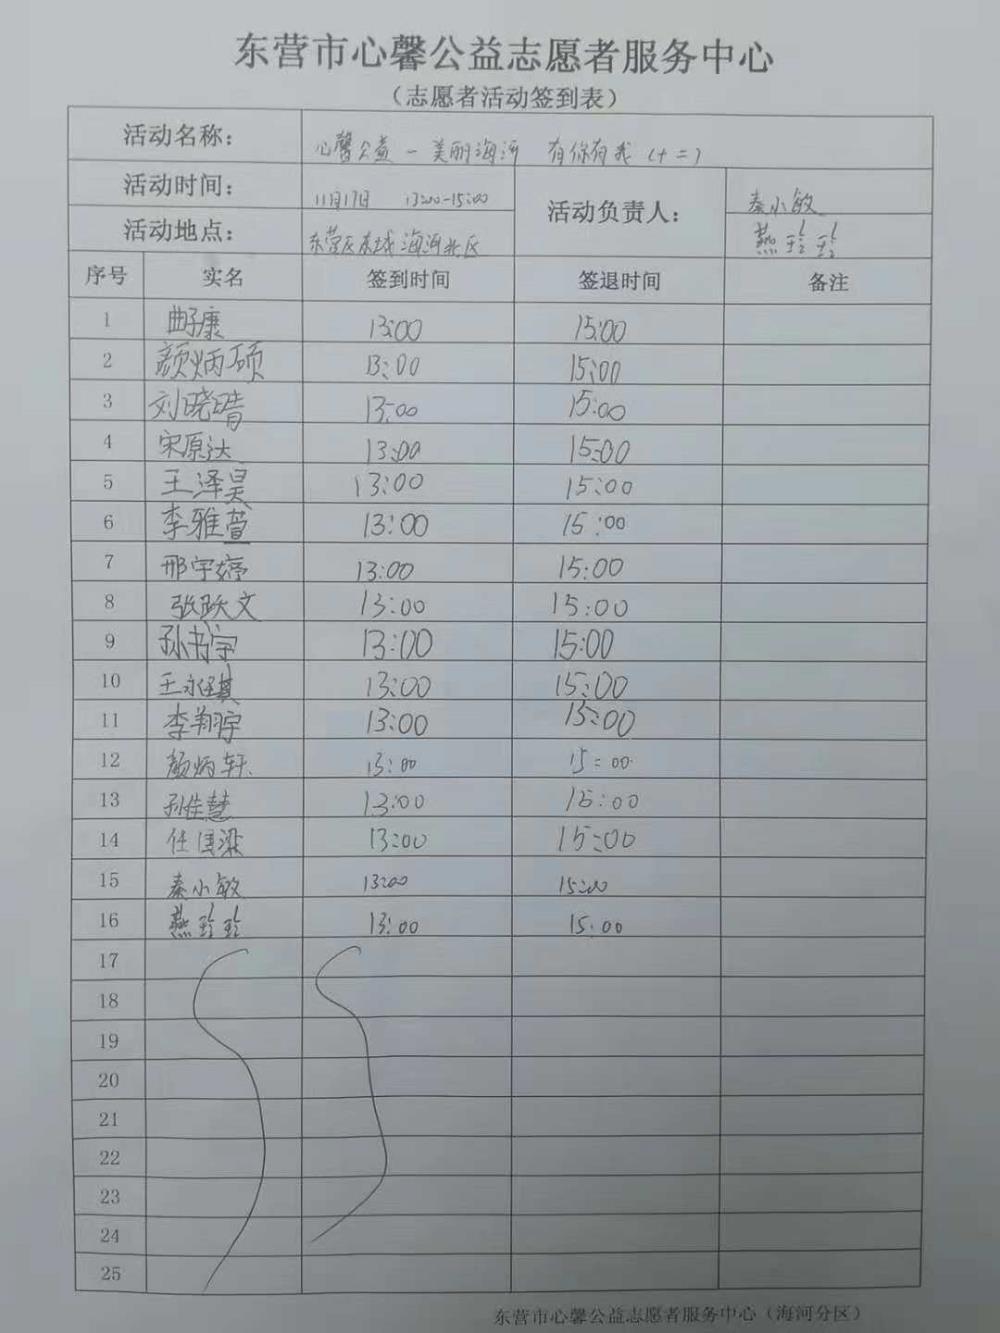 东营市心馨公益志愿者服务中心
（志愿者活动签到表）
活动名称： 心馨公益－美丽海河 有你有我（十二）
活动时间： 11月17日 13:00-15:00 活动负责人： 秦小敏
活动地点： 东营区东城海河北区 燕玲玲
序号 实名 签到时间 签退时间 备注
1 曲子康 13:00 15:00
2 颜炳硕 13:00 15:00
3 刘晓晴 13:00 15:00
4 宋原达 13:00 15:00
5 王泽昊 13:00 15:00
6 李雅萱 13:00 15:00
7 邢宇婷 13:00 15:00
8 张跃文 13:00 15:00
9 孙书宇 13:00 15:00
10 王永琪 13:00 15:00
11 李翔宇 13:00 15:00
12 颜炳轩 13:00 15:00
13 孙佳慧 13:00 15:00
14 任国梁 13:00 15:00
15 秦小敏 13:00 15:00
16 燕玲玲 13:00 15:00
17
18
19
20
21
22
23
24
25
东营市心馨公益志愿者服务中心（海河分区）